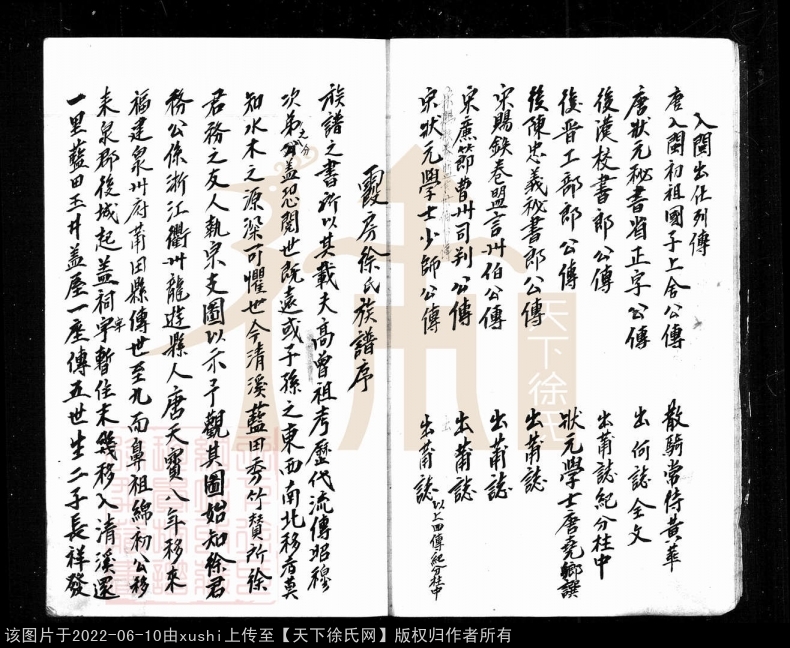 入閩出仕列傳
唐入閩初祖國子上舍公傳 散騎常侍黃華
唐狀元秘書省正字公傳 出何誌全文
後漢校書郎公傳 出莆誌紀分柱中
後晉工部郎公傳 狀元學士唐堯卿譔
後陳忠義秘書郎公傳 出莆誌
宋賜鉄卷盟言州伯公傳 出莆誌
宋廉節曹州司判公傳 出莆誌
宋狀元學士少師公傳 出莆誌 以上四傳紀分柱中
霞房徐氏族譜序
族譜之書所以其載夫高曾祖考歷代流傳昭穆
次第之分蓋恐閱世既遠或子孫之東西南北移者莫
知水木之源深可懼世今清溪藍田秀竹贊所徐
君務之友人執宗支圖以示予觀其圖始知徐君
務公係浙江衢州龍遊縣人唐天寶八年移來
福建泉州府莆田縣傳世至九而鼻祖綿初公移
來泉郡後城起蓋祠宇暫住未幾移入清溪還
一里藍田玉井蓋屋一座傳五世生二子長祥發
天下徐氏
该图片于2022-06-10由xushi上传至【天下徐氏网】版权归作者所有